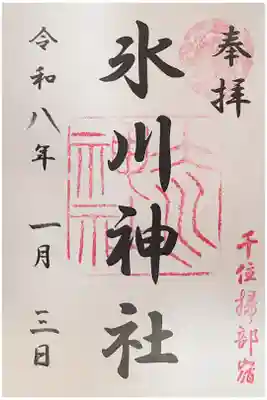 奉拝
氷川神社
令和八年 一月 三日
千住掃部宿